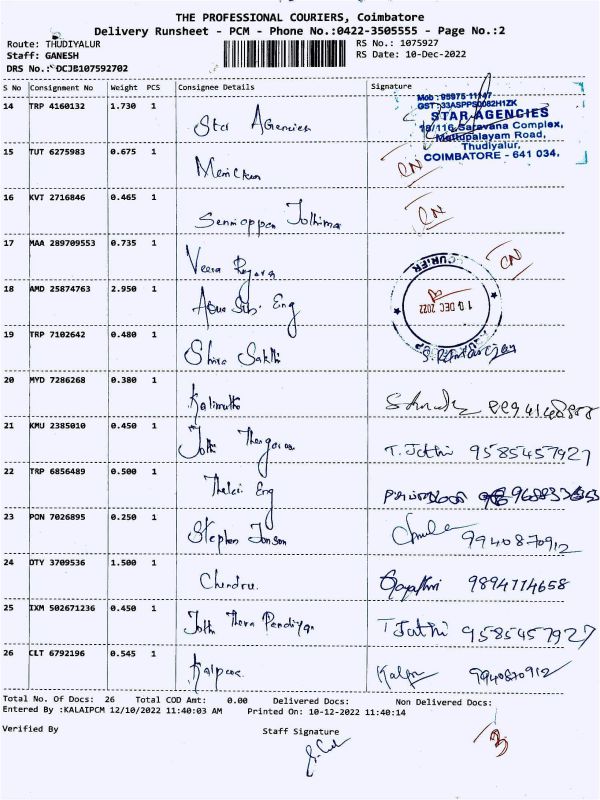 THE PROFESSIONAL COURIERS, Coimbatore
Delivery Runsheet - PCM - Phone No.:0422-3505555 - Page No.:2
Route: THUDIYALUR
RS No.: 1075927
Staff: GANESH
RS Date: 10-Dec-2022
DRS No.: DCJB107592702
S No Consignment No Weight PCS Consignee Details Signature
Mob : 95975 11147
GST : 33ASPPS0082H1ZK
STAR AGENCIES
18/116, Saravana Complex,
Mettupalayam Road,
Thudiyalur,
COIMBATORE - 641 034.
14 TRP 4160132 1.730 1 Star Agencies
15 TUT 6275983 0.675 1
16 KVT 2716846 0.465 1 Jothima
17 MAA 289709553 0.735 1 Veera
18 AMD 25874763 2.950 1 Eng
COURIER
10 DEC 2022
19 TRP 7102642 0.480 1 Shiva Sakthi
20 MYD 7286268 0.380 1 Kalimuthu
21 KMU 2385010 0.450 1 Jothi T. Jothi 9585457927
22 TRP 6856489 0.500 1 Eng
23 PON 7026895 0.250 1 Stephen Jonson 9940870912
24 OTY 3709536 1.500 1 Chendru. Gayathri 9894774658
25 IXM 502671236 0.450 1 Jothi Thera Pandiyan T Jothi 9585457927
26 CLT 6792196 0.545 1 Kalpana 9940870912
Total No. Of Docs: 26 Total COD Amt: 0.00 Delivered Docs: Non Delivered Docs:
Entered By :KALAIPCM 12/10/2022 11:40:03 AM Printed On: 10-12-2022 11:40:14
Verified By Staff Signature
3